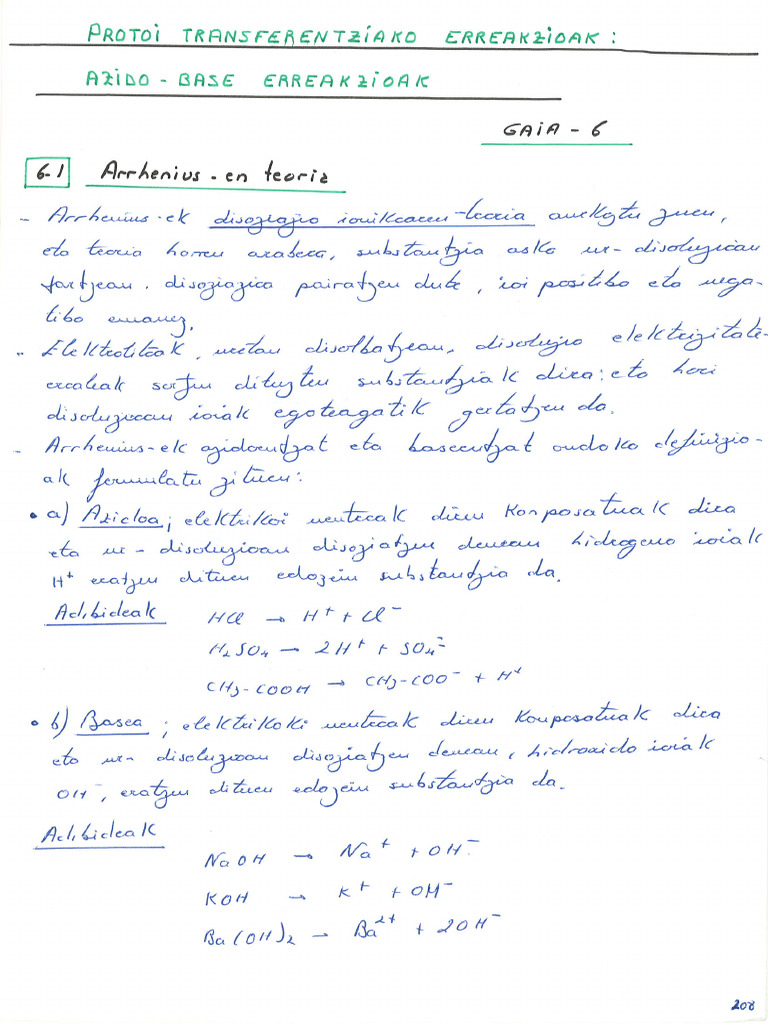 PROTOI TRANSFERENTZIAKO ERREAKZIOAK:
AZIDO-BASE ERREAKZIOAK
GAIA - 6
6.1 Arrhenius-en teoria
- Arrhenius-ek disoziazio ionikoaren-teoria aurkeztu zuen,
eta teoria horren arabera, substantzia asko ur-disoluzioan
jartzean, disoziazioa pairatzen dute, ioi positibo eta nega-
tibo emanez.
- Elektrolitoak, uretan disolbatzean, disoluzio elektrizitate-
eroaleak sortzen dituzten substantziak dira: eta hori
disoluzioan ioiak egoteagatik gertatzen da.
- Arrhenius-ek azidoentzat eta baseentzat ondoko definizio-
ak formulatu zituen:
• a) Azidoa; elektrikoki neutroak diren konposatuak dira
eta ur-disoluzioan disoziatzen denean hidrogeno ioiak
H⁺ eratzen dituen edozein substantzia da.
Adibideak HCl → H⁺ + Cl⁻
H₂SO₄ → 2H⁺ + SO₄⁼
CH₃-COOH → CH₃-COO⁻ + H⁺
• b) Basea; elektrikoki neutroak diren konposatuak dira
eta ur-disoluzioan disoziatzen denean, hidroxido ioiak
OH⁻, eratzen dituen edozein substantzia da.
Adibideak
NaOH → Na⁺ + OH⁻
KOH → K⁺ + OH⁻
Ba(OH)₂ → Ba²⁺ + 2OH⁻
208